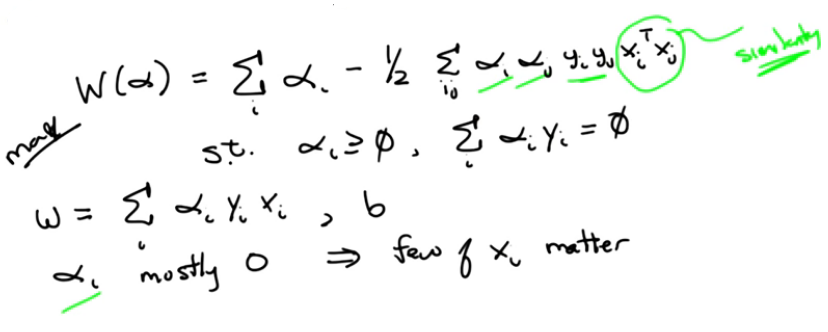 max W(α) = Σ_i α_i - 1/2 Σ_ij α_i α_j y_i y_j x_i^T x_j similarity
s.t. α_i ≥ ∅, Σ_i α_i y_i = ∅
w = Σ_i α_i y_i x_i, b
α_i mostly 0 ⇒ few of x_i matter